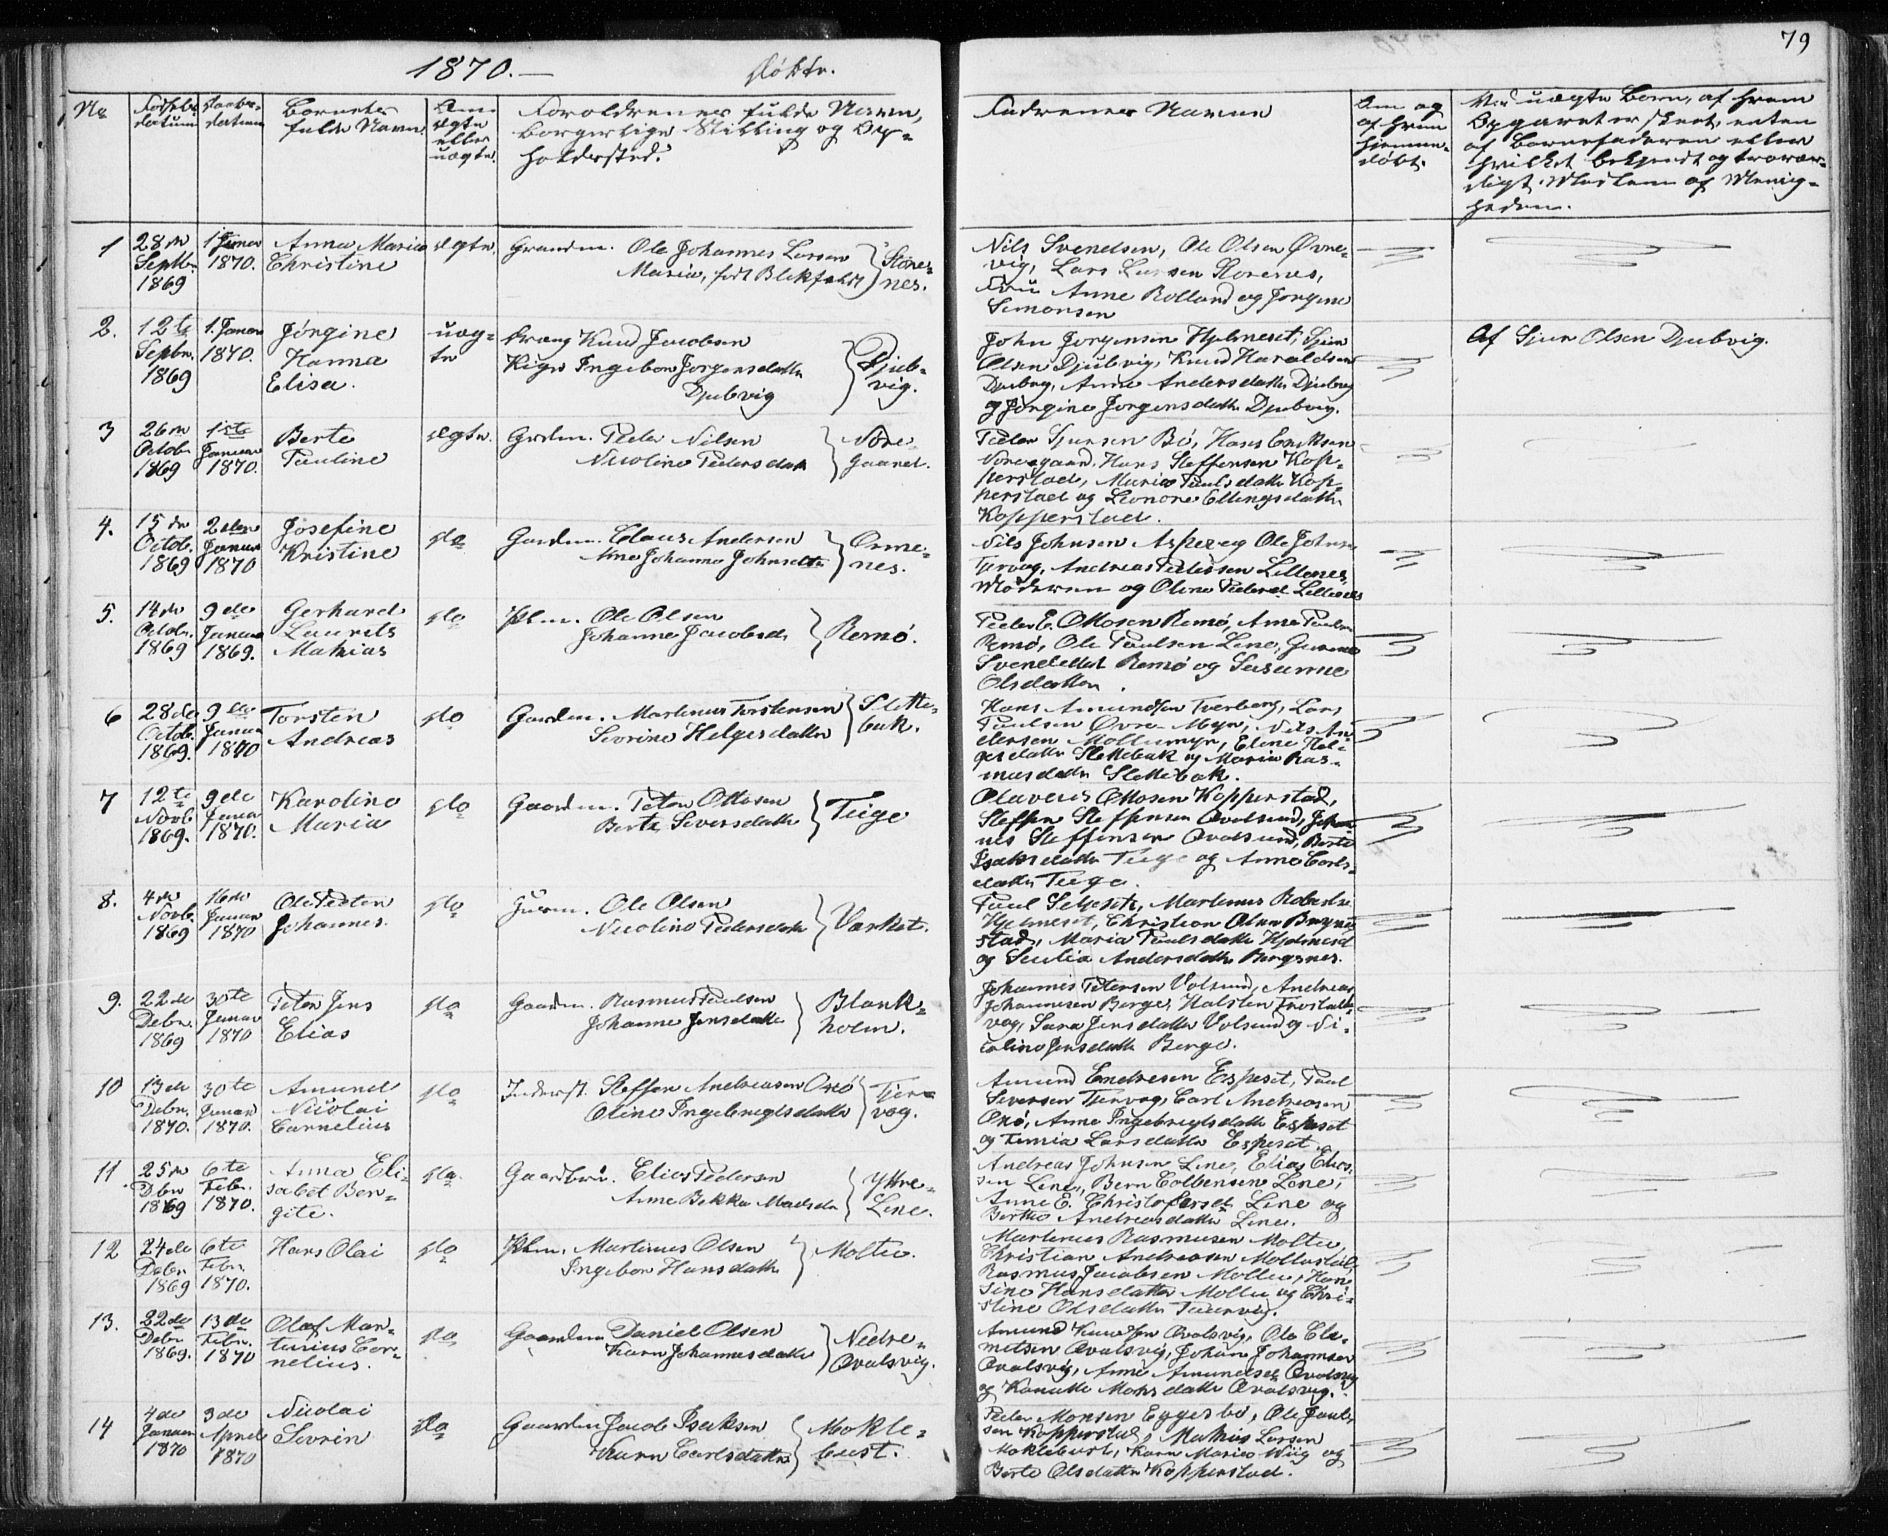 79
1870. — Døbte.
No
Fødsels-
datum
Daabs-
datum
Barnets
fulde Navn.
Om
ægte
eller
uægte.
Forældrenes fulde Navn,
borgerlige Stilling og Op-
holdssted.
Faddernes Navne
Om og
af hvem
hjemme-
døbt.
Ved uægte Børn, af hvem
Opgivet er skeet, enten
af Barnefaderen eller
hvilket bekjendt og trovær-
digt Medlem af Menig-
heden.
1
28de
Septb.
1869
1 Januar
1870.
Anna Maria
Christine
ægte.
Grundm. Ole Johannes Larsen
Maria, født Blekfeldt
Store-
nes.
Nils Svendsen, Ole Olsen Øvre-
vig, Lars Larsen Storenes,
Fru Anne Rolland og Jørgine
Simonsen
2.
12te
Septbr.
1869
1. Januar
1870.
Jørgine
Hanna
Elisa.
uæg-
te
Dreng Knud Jacobsen
Pige Ingebor Jørgensdatter
Djubvig
Djub-
vig.
John Jørgensen Hjelmeset, Sjur
Olsen Djubvig, Knud Haraldsen
Djubvig, Anne Andersdatter Djubvig
og Jørgine Jørgensdatter Djubvig.
Af Sjur Olsen Djubvig.
3
26de
Octob.
1869
1ste
Januar
1870.
Berte
Pauline
ægte.
Grdm. Peder Nilsen
Nicoline Pedersdatter
Nore-
gaard.
Peder Sjursen Bø, Hans Endresen
Noregaard, Hans Steffensen Kop-
perstad, Maria Paulsdatter Kop-
perstad og Leonore Ellingsdatter
Kopperstad.
4.
15de
Octob.
1869
2den
Januar
1870
Josefine
Kristine
do
Gaardm. Claus Andersen
Ane Johanna Johnsdtr
Orme-
nes.
Nils Johnsen Aspevig Ole Johnsen
Tjervog, Andreas Pedersen Lillenes,
Moderen og Oline Pedersd. Lillenes
5.
14de
Octob.
1869
9de
Januar
1869.
Gerhard
Laurits
Mathias
do
Plm. Ole Olsen
Johanne Jacobsd.
Remø.
Peder E. Ottosen Remø, Arne Paulsen
Remø, Ole Paulsen Line, Gurine
Svendsdat Remø og Susanne
Olsdatter.
6
28de
Octob.
1869.
9de
Januar
1870
Torsten
Andreas
do
Gaardm. Martinus Torstensen
Sevrine Helgesdatter
Slette-
bak.
Hans Amundsen Tverberg, Lars
Paulsen Øvre Myr, Nils An-
dersen Mollemyr, Eline Hel-
gesdatter Slettebak og Maria Ras-
musdatter Slettebak.
7
12te
Novb.
1869.
9de
Januar
1870.
Karoline
Maria
do
Gaardm. Peter Ottosen
Berte Seversdatter
Teige
Olaverus Ottosen Kopperstad,
Steffen Steffensen Qvalsund, Johan-
nes Steffensen Qvalsund, Berte
Isaksdatter Teige og Anne Carls-
datter Teige.
8.
4de
Novb.
1869
16de
Januar
1870
Ole Peder
Johannes.
do
Huusm. Ole Olsen
Nicoline Pedersdatter
Værket.
Paul Selseth, Martinus Robertsen
Hjelmeset, Christian Olsen Brynne-
stad, Maria Paulsdatter Hjelmeset
og Seulia Andersdatter Bergsnes.
9.
22de
Debr.
1869
30te
Januar
1870
Peter Jens
Elias
do
Gaardm. Rasmus Paulsen
Johanne Jensdatter
Blank-
holm.
Johannes Petersen Volsund, Andreas
Johannesen Berge, Halsten Frostad
vog, Sara Jensdatter Volsund og Ni-
coline Jensdatter Berge.
10
13de
Debr.
1870.
30te
Januar
1870.
Amund
Nicolai
Cornelius
do
Inderst. Steffen Andreasen Oxø
Oline Ingebregtsdatter
Tjer-
vog.
Amund Endresen Espeset, Paul
Seversen Tjervog, Carl Andreasen
Oxø, Anne Ingebregtsdatter Espeset
og Lars datter Espeset
11.
25de
Dbr
1869
6te
Febr.
1870.
Anna Eli-
sabet Ber-
gite.
do.
Gaardbrs. Elias Pedersen
Anne Bekka Madsdr
Yttre-
Line.
Andreas Johnsen Line, Elias Elias-
sen Line, Bern Colbensen Line,
Anne E. Christofersd. Line og
Berthe Andreasdatter Line.
12
24de
Debr
1869
6te
Febr.
1870.
Hans Olai
do
Plm. Martinus Olsen
Ingebor Hansdatter
Moltu.
Martinus Rasmussen Moltu,
Christian Andreasen Mollestad,
Rasmus Jacobsen Moltu, Han-
sine Hansdatter Moltu og Chri-
stine Olsdatter Taurvig.
13.
22de
Debr
1869.
13de
Febr.
1870
Olaf Mar-
tinius Cor-
nelius.
do
Gaardm Daniel Olsen
Karn Johannesdatter
Nedre-
Qvalsvig.
Amund Knudsen Qvalsvig, Ole Cle-
metsen Qvalsvig, Johan Johannsen
Qvalsvig, Anne Amundsdt. Qvalsvig
og Kanutte Mohsdatter Qvalsvig.
14
4de
Januar
1870
3de
April
1870
Nicolai
Sevrin
do
Gaardm Jacob Isaksen
Karn Carlsdatter
Mokle-
bust.
Peder Monsen Eggesbø, Ole Paul-
sen Kopperstad, Mathis Larsen
Moklebust, Karn Maria Wiig og
Berte Olsdatter Kopperstad.